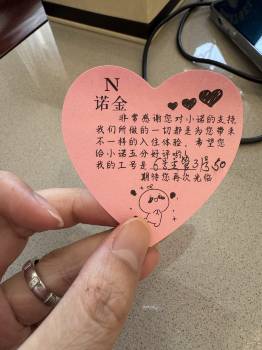 N
诺金
非常感谢您对小诺的支持
我们所做的一切都是为您带来
不一样的入住体验，希望您
给小诺五分好评哟！
我的工号是
期待您再次光临